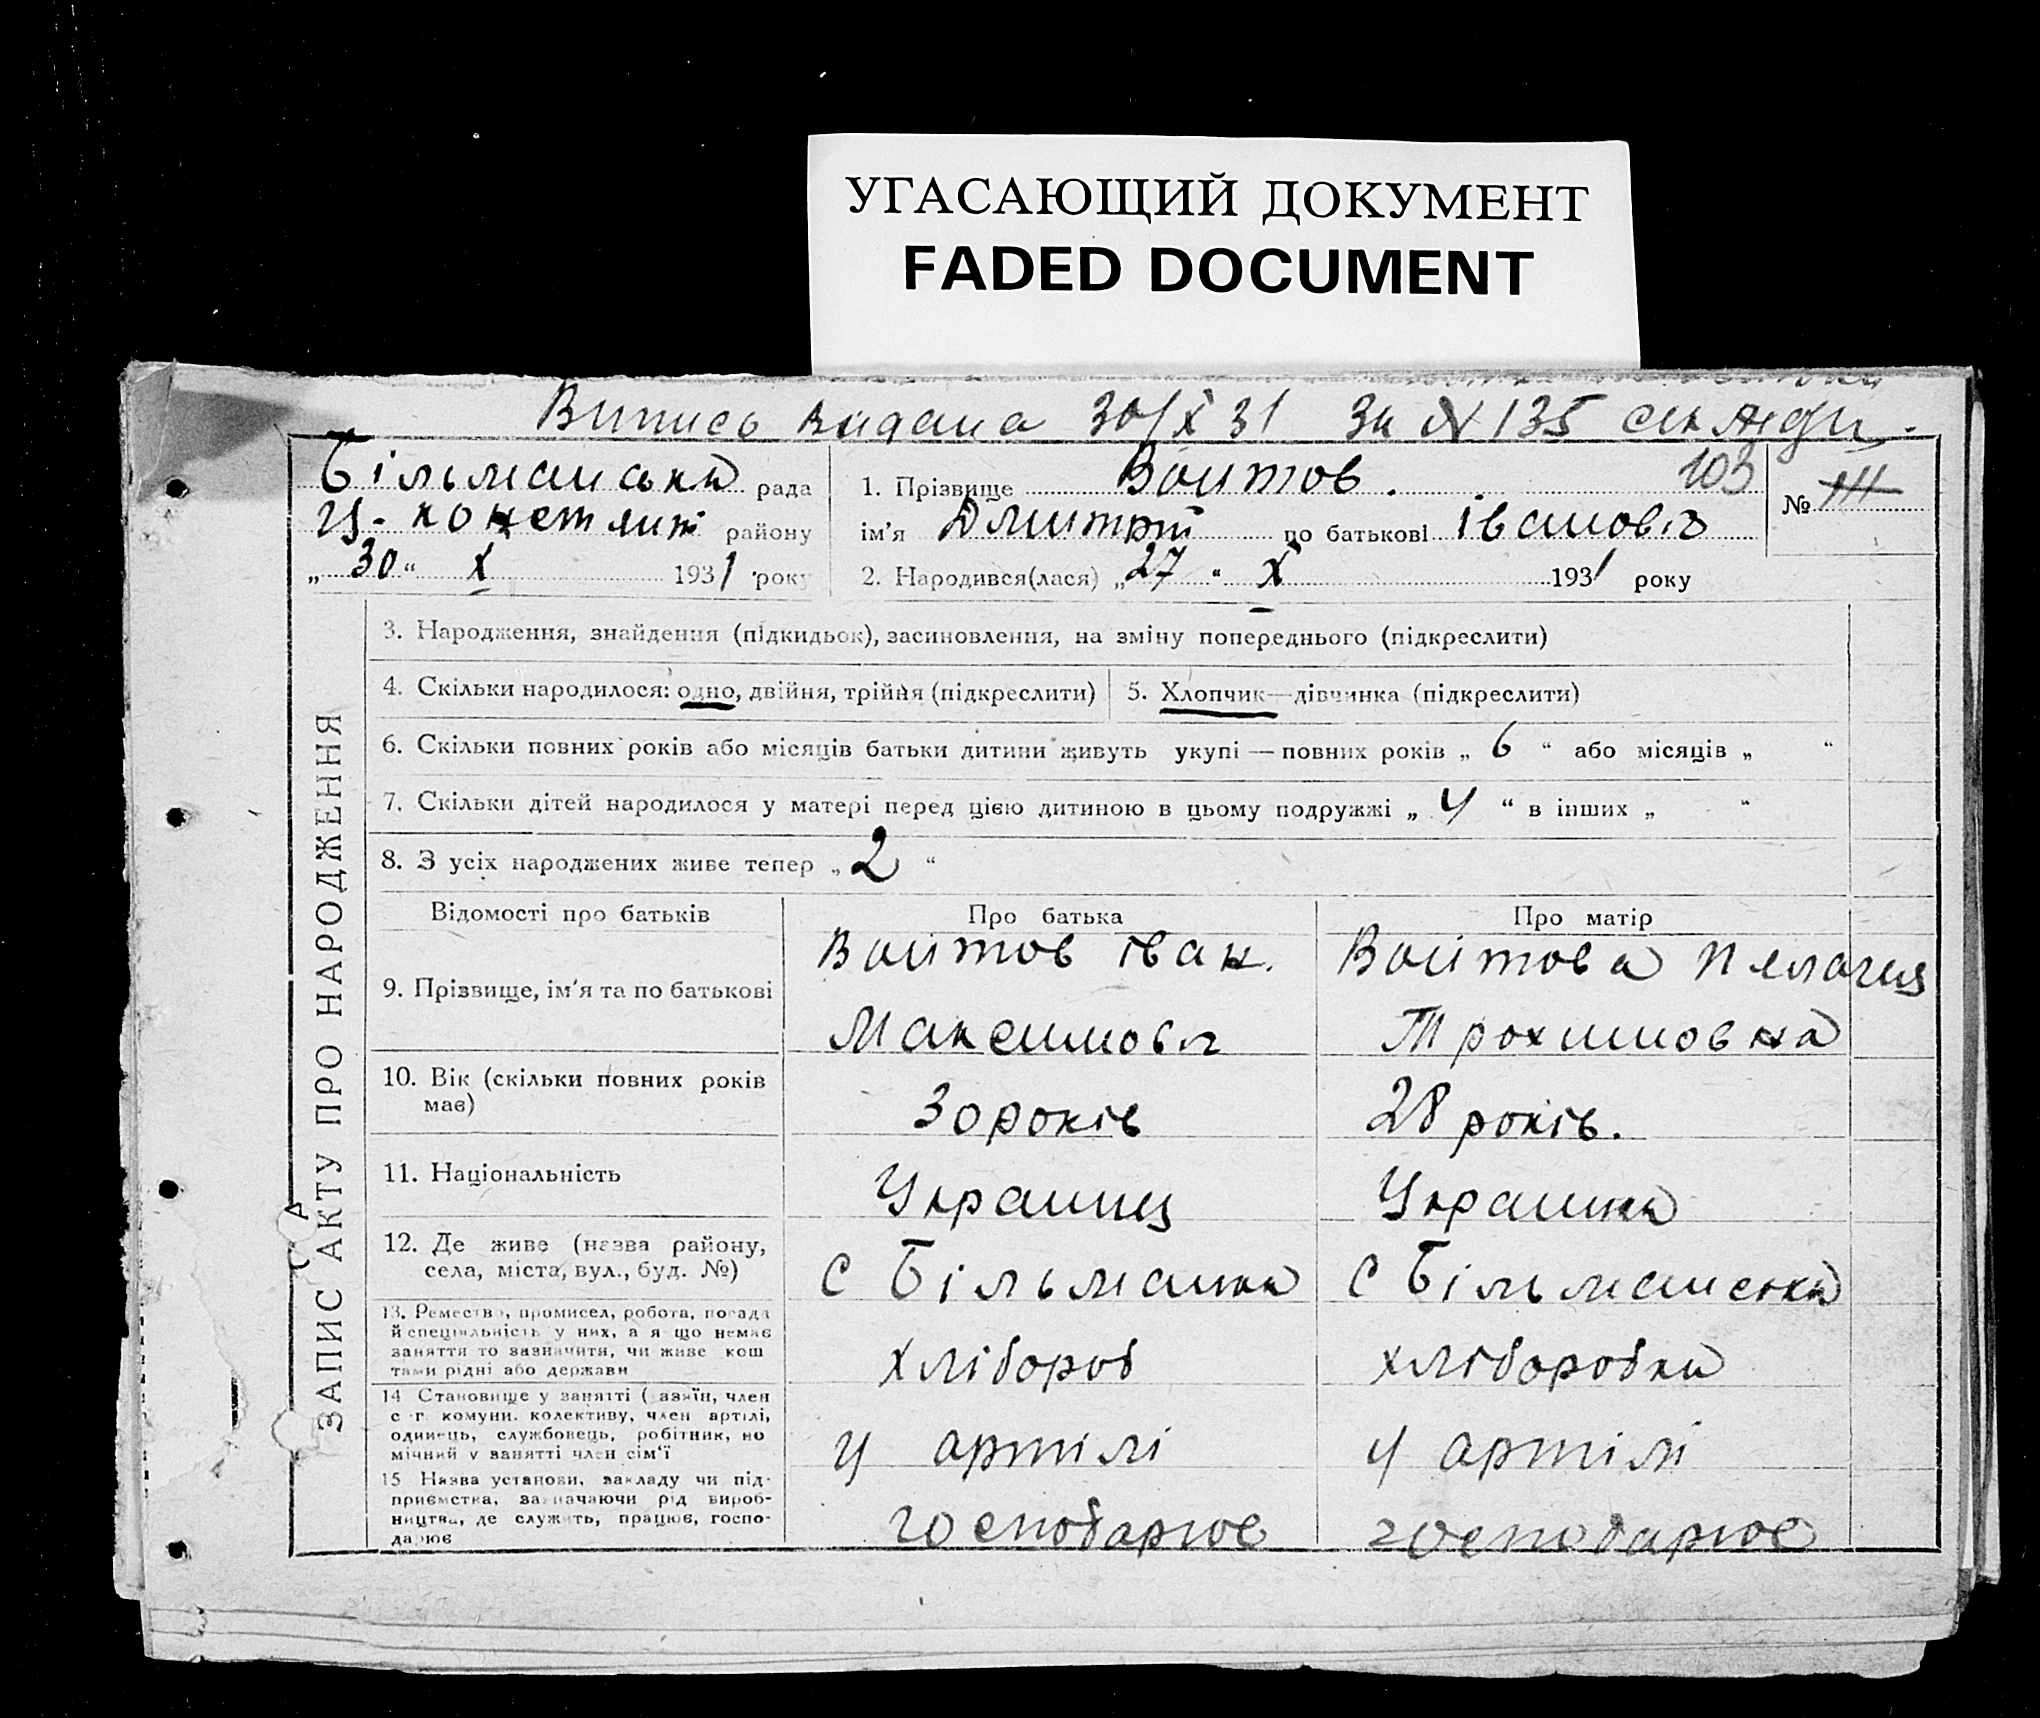 УГАСАЮЩИЙ ДОКУМЕНТ
FADED DOCUMENT
Випись видана 30/X 31 за N 135
Більманська рада
района району
„30“ X 1931 року
1. Прізвище Воитов. 103
ім'я Дмитрій по батькові Івановіч
2. Народився(лася) „27“ X 1931 року
№ 111
ЗАПИС АКТУ ПРО НАРОДЖЕННЯ
3. Народження, знайдення (підкидьок), засиновлення, на зміну попереднього (підкреслити)
4. Скільки народилося: одно, двійня, трійня (підкреслити)
5. Хлопчик—дівчинка (підкреслити)
6. Скільки повних років або місяців батьки дитини живуть укупі — повних років „ 6 “ або місяців „ “
7. Скільки дітей народилося у матері перед цією дитиною в цьому подружжі „ 4 “ в інших „ “
8. З усіх народжених живе тепер „ 2 “
Відомості про батьків
Про батька
Про матір
9. Прізвище, ім'я та по батькові
Воитов Іван.
Максимовіч
Воитова Пелагия
Трохимовна
10. Вік (скільки повних років
має)
30 років
28 років.
11. Національність
Украинец
Украинка
12. Де живе (назва району,
села, міста, вул., буд. №)
с Більманка
с Більманка
13. Ремество, промисел, робота, посада
й спеціяльність у них, а я що немає
заняття то зазначити, чи живе кош
тами рідні або держави
хлібороб
хліборобка
14 Становище у занятті (хазяїн, член
с г. комуни. колективу, член артілі,
одинець, службовець, робітник, по
мічний у занятті член сім'ї
у артілі
у артілі
15 Назва установи, закладу чи під-
приємства, зазначаючи рід вироб-
ництва, де служить, працює, госпо-
дарює
господарює
господарює